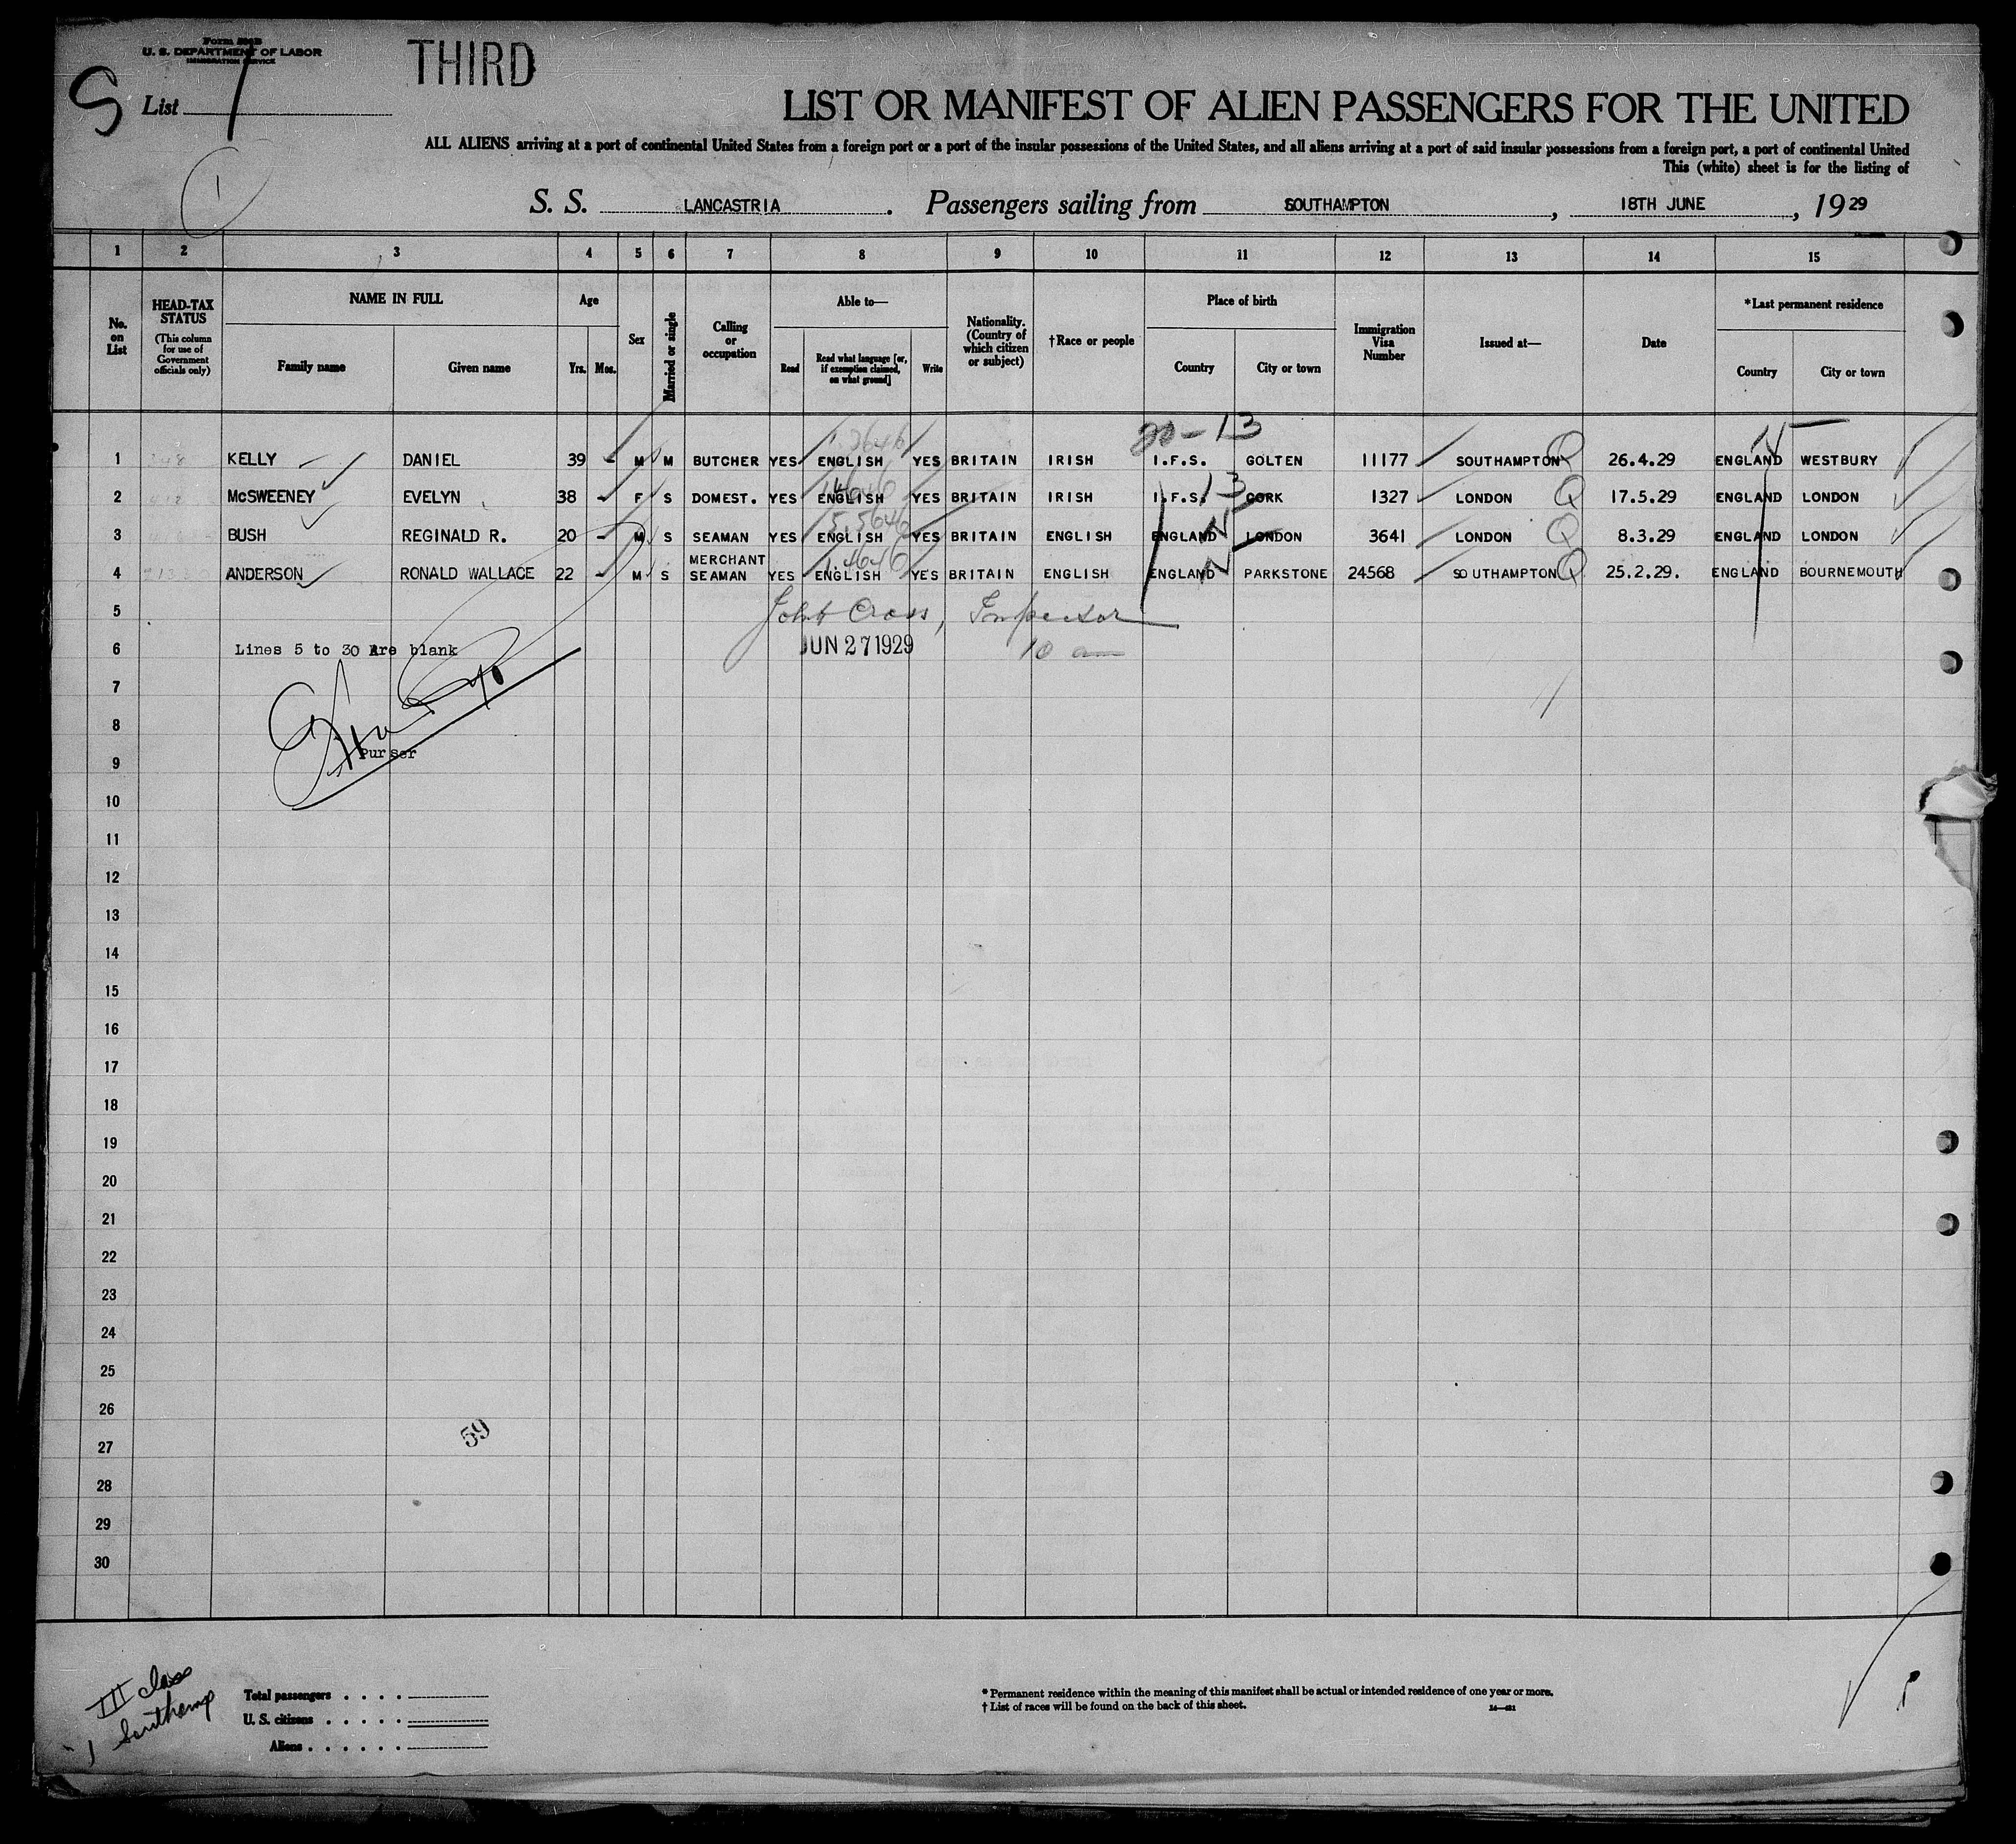 Form 500B
U. S. DEPARTMENT OF LABOR
IMMIGRATION SERVICE
THIRD
S List 1
LIST OR MANIFEST OF ALIEN PASSENGERS FOR THE UNITED
ALL ALIENS arriving at a port of continental United States from a foreign port or a port of the insular possessions of the United States, and all aliens arriving at a port of said insular possessions from a foreign port, a port of continental United
This (white) sheet is for the listing of
1
S. S. LANCASTRIA. Passengers sailing from SOUTHAMPTON, 18TH JUNE, 1929
1 2 3 4 5 6 7 8 9 10 11 12 13 14 15
No. on List
HEAD-TAX STATUS (This column for use of Government officials only)
NAME IN FULL
Family name Given name
Age
Yrs. Mos.
Sex
Married or single
Calling or occupation
Able to—
Read Read what language [or, if exemption claimed, on what ground] Write
Nationality. (Country of which citizen or subject)
†Race or people
Place of birth
Country City or town
Immigration Visa Number
Issued at—
Date
*Last permanent residence
Country City or town
1 KELLY DANIEL 39 - M M BUTCHER YES ENGLISH YES BRITAIN IRISH I.F.S. GOLTEN 11177 SOUTHAMPTON Q 26.4.29 ENGLAND WESTBURY
2 McSWEENEY EVELYN 38 - F S DOMEST. YES ENGLISH YES BRITAIN IRISH I.F.S. CORK 1327 LONDON Q 17.5.29 ENGLAND LONDON
3 BUSH REGINALD R. 20 - M S SEAMAN YES ENGLISH YES BRITAIN ENGLISH ENGLAND LONDON 3641 LONDON Q 8.3.29 ENGLAND LONDON
4 ANDERSON RONALD WALLACE 22 - M S MERCHANT SEAMAN YES ENGLISH YES BRITAIN ENGLISH ENGLAND PARKSTONE 24568 SOUTHAMPTON Q 25.2.29. ENGLAND BOURNEMOUTH
5 John Cross, Inspector
6 Lines 5 to 30 Are blank JUN 27 1929 10 am
7
8
Purser
9
10
11
12
13
14
15
16
17
18
19
20
21
22
23
24
25
26
59
27
28
29
30
III class
Southamp
Total passengers . . . .
U. S. citizens . . . . .
Aliens . . . . . .
* Permanent residence within the meaning of this manifest shall be actual or intended residence of one year or more.
† List of races will be found on the back of this sheet.